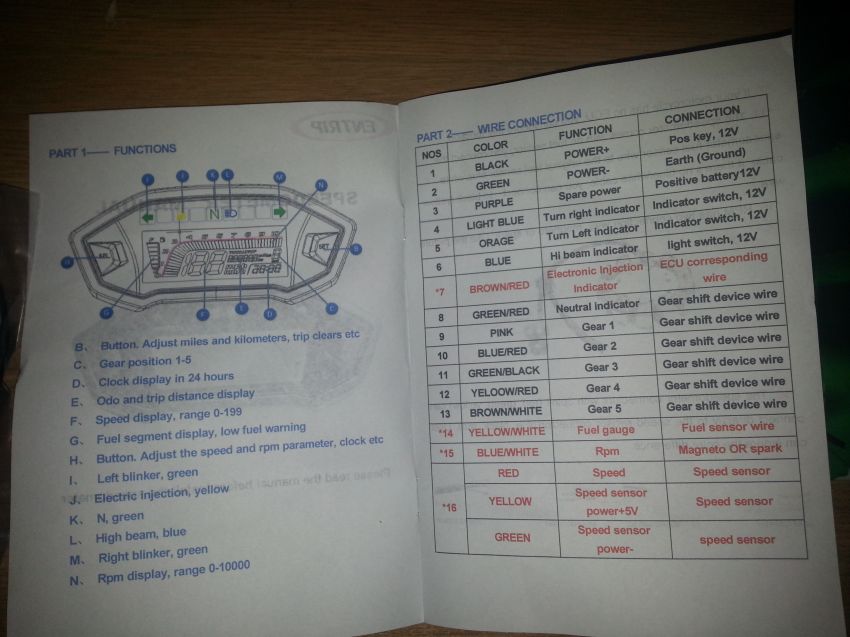 PART 1—— FUNCTIONS
N
B、 Button. Adjust miles and kilometers, trip clears etc
C、 Gear position 1-5
D、 Clock display in 24 hours
E、 Odo and trip distance display
F、 Speed display, range 0-199
G、 Fuel segment display, low fuel warning
H、 Button. Adjust the speed and rpm parameter, clock etc
I、 Left blinker, green
J、 Electric injection, yellow
K、 N, green
L、 High beam, blue
M、 Right blinker, green
N、 Rpm display, range 0-10000
PART 2—— WIRE CONNECTION
NOS COLOR FUNCTION CONNECTION
1 BLACK POWER+ Pos key, 12V
2 GREEN POWER- Earth (Ground)
3 PURPLE Spare power Positive battery12V
4 LIGHT BLUE Turn right indicator Indicator switch, 12V
5 ORAGE Turn Left indicator Indicator switch, 12V
6 BLUE Hi beam indicator light switch, 12V
*7 BROWN/RED Electronic Injection Indicator ECU corresponding wire
8 GREEN/RED Neutral indicator Gear shift device wire
9 PINK Gear 1 Gear shift device wire
10 BLUE/RED Gear 2 Gear shift device wire
11 GREEN/BLACK Gear 3 Gear shift device wire
12 YELOOW/RED Gear 4 Gear shift device wire
13 BROWN/WHITE Gear 5 Gear shift device wire
*14 YELLOW/WHITE Fuel gauge Fuel sensor wire
*15 BLUE/WHITE Rpm Magneto OR spark
*16 RED Speed Speed sensor
YELLOW Speed sensor power+5V Speed sensor
GREEN Speed sensor power- speed sensor